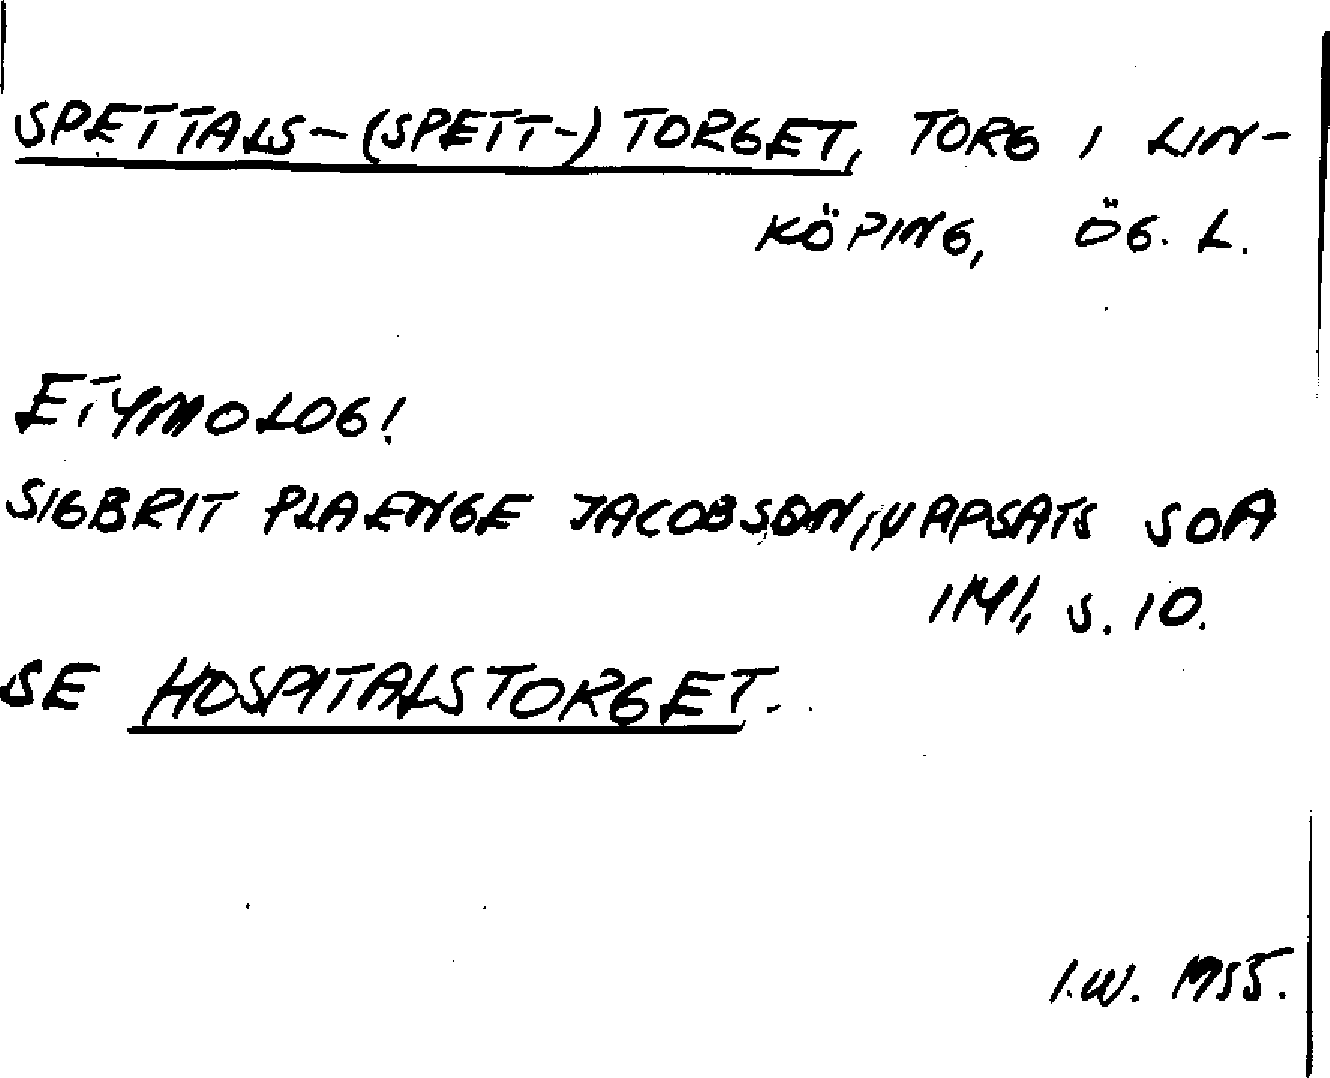 SPETTALS-(SPETT-) TORGET, TORG I LIN-
KÖPING, ÖG. L.
ETYMOLOGI
SIGBRIT PLAENGE JACOBSON, UPPSATS SOA
1941, s. 10.
SE HOSPITALSTORGET.
I.W. 1955.